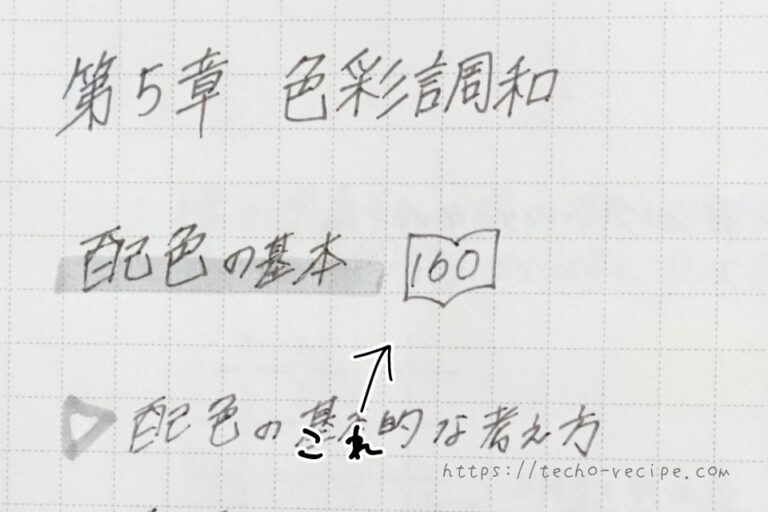 第5章 色彩調和
配色の基本 160
配色の基本的な考え方
これ
https://techo-recipe.com